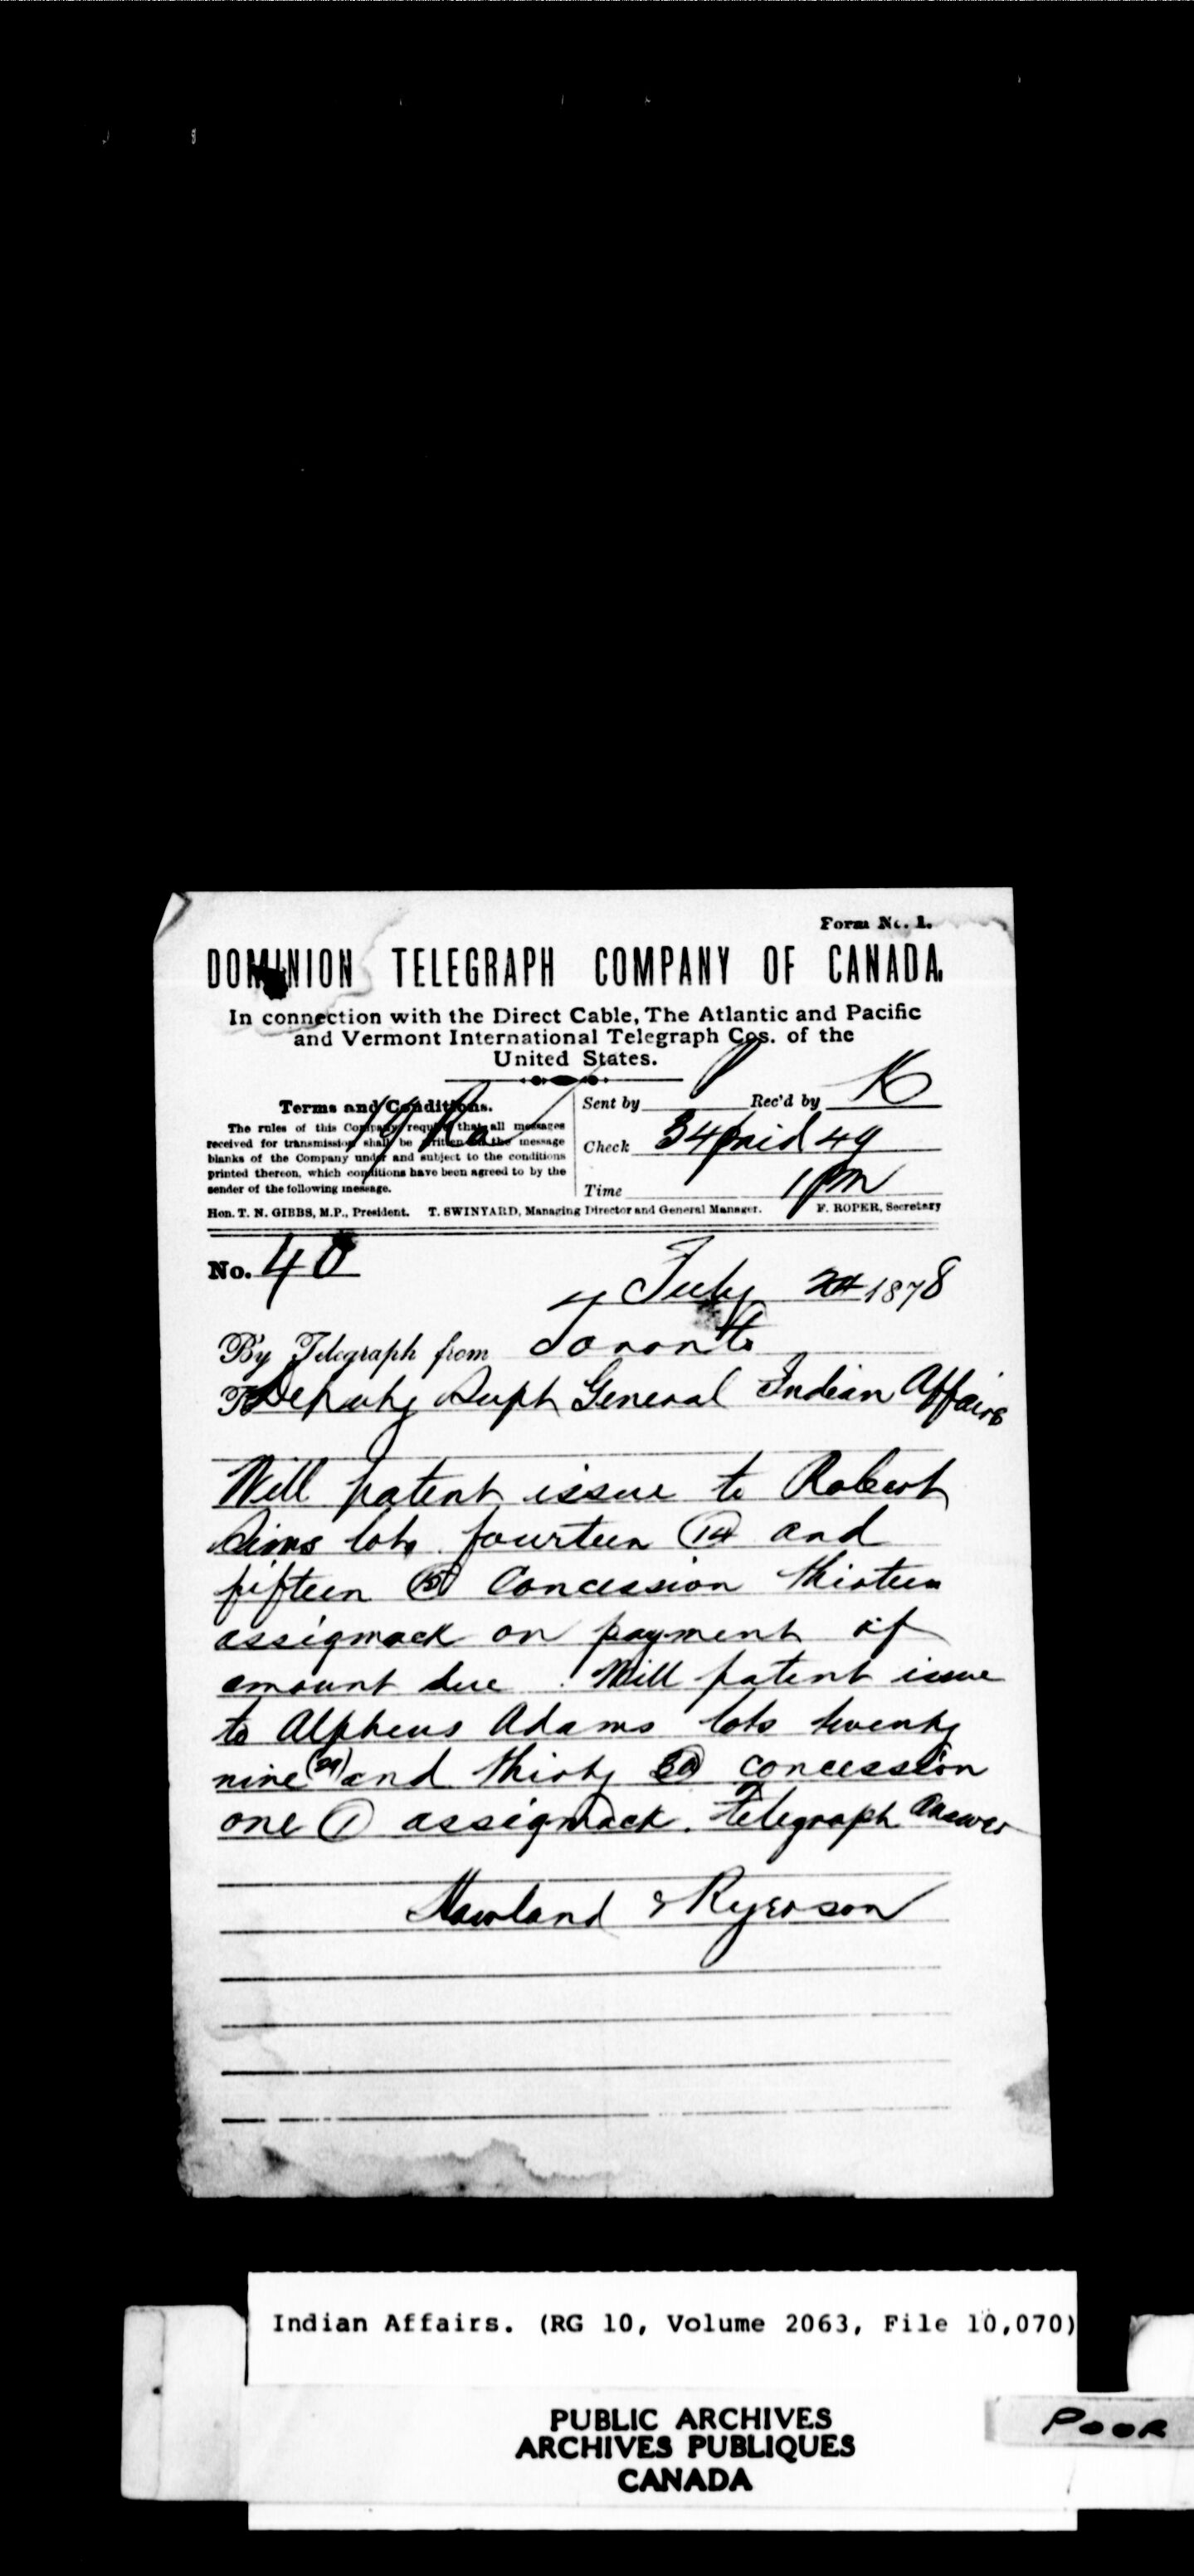 Form No. 1.
DOMINION TELEGRAPH COMPANY OF CANADA.
In connection with the Direct Cable, The Atlantic and Pacific
and Vermont International Telegraph Cos. of the
United States.
Terms and Conditions.
The rules of this Company require that all messages
received for transmission shall be written on the message
blanks of the Company under and subject to the conditions
printed thereon, which conditions have been agreed to by the
sender of the following message.
Sent by Rec'd by K
Check 34 paid 49
Time 1 PM
Hon. T. N. GIBBS, M.P., President. T. SWINYARD, Managing Director and General Manager. F. ROPER, Secretary
No. 40
July 24 1878
By Telegraph from Toronto
To Deputy Supt General Indian Affairs
Will patent issue to Robert
Sims lots fourteen (14) and
fifteen (15) Concession thirteen
assigmack on payment of
amount due. Will patent issue
to Alpheus Adams lots twenty
nine (29) and thirty 30 concession
one (1) assigmack. telegraph Answer
Howland & Ryerson
Indian Affairs. (RG 10, Volume 2063, File 10,070)
PUBLIC ARCHIVES
ARCHIVES PUBLIQUES
CANADA
POOR